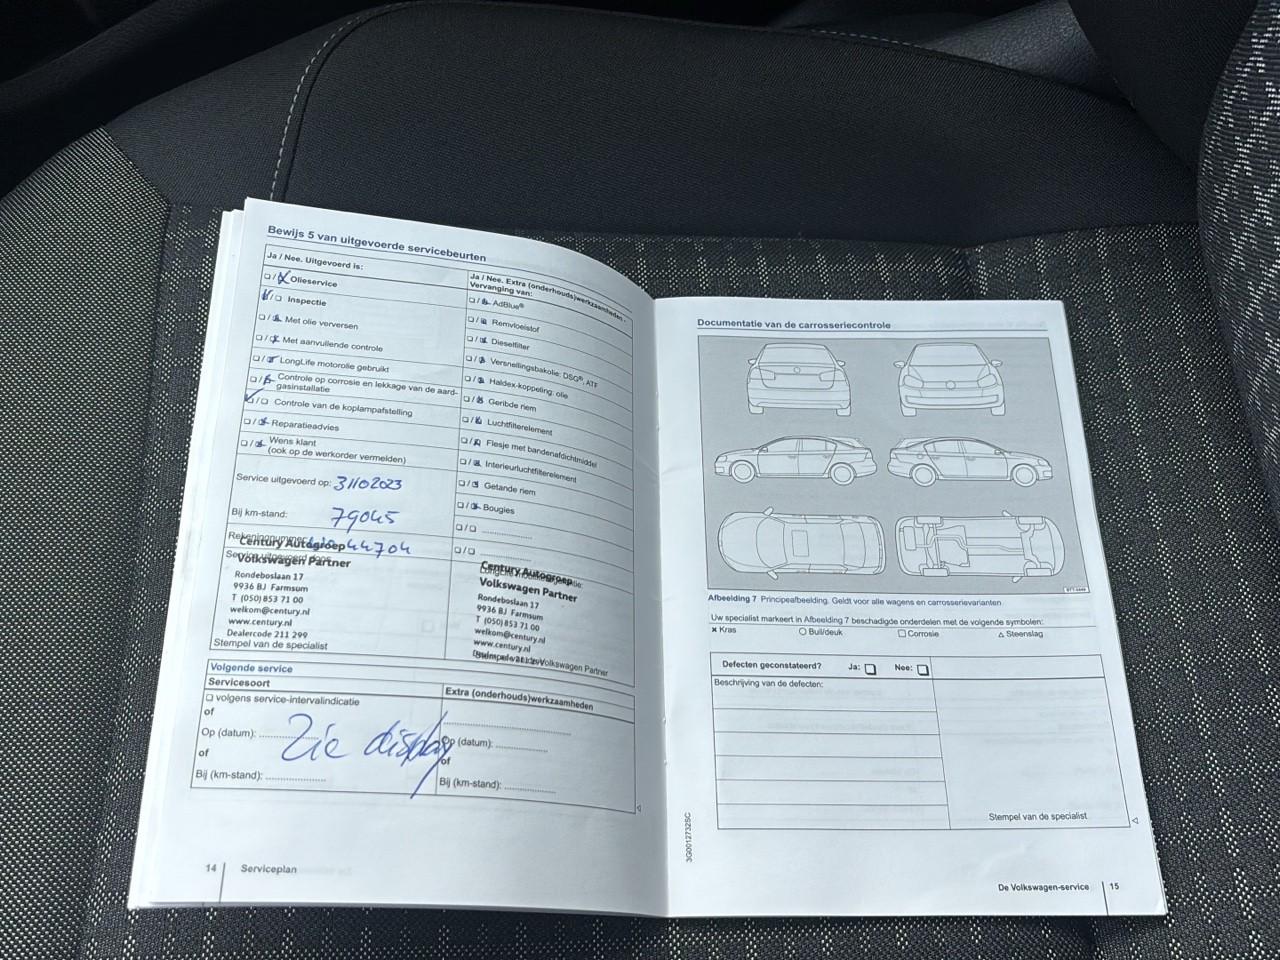 Bewijs 5 van uitgevoerde servicebeurten
Ja / Nee. Uitgevoerd is:
☐ / ☐ Olieservice
☐ / ☐ Inspectie
☐ / ☐ Met olie verversen
☐ / ☐ Met aanvullende controle
☐ / ☐ LongLife motorolie gebruikt
☐ / ☐ Controle op corrosie en lekkage van de aard-
gasinstallatie
☐ / ☐ Controle van de koplampafstelling
☐ / ☐ Reparatieadvies
☐ / ☐ Wens klant
(ook op de werkorder vermelden)
Service uitgevoerd op: 31102023
Bij km-stand: 79045
Rekeningnummer: 44704
Service uitgevoerd door:
Century Autogroep
Volkswagen Partner
Rondeboslaan 17
9936 BJ Farmsum
T (050) 853 71 00
welkom@century.nl
www.century.nl
Dealercode 211 299
Stempel van de specialist
Ja / Nee. Extra (onderhouds)werkzaamheden -
Vervanging van:
☐ / ☐ AdBlue®
☐ / ☐ Remvloeistof
☐ / ☐ Dieselfilter
☐ / ☐ Versnellingsbakolie: DSG®, ATF
☐ / ☐ Haldex-koppeling: olie
☐ / ☐ Geribde riem
☐ / ☐ Luchtfilterelement
☐ / ☐ Flesje met bandenafdichtmiddel
☐ / ☐ Interieurluchtfilterelement
☐ / ☐ Getande riem
☐ / ☐ Bougies
☐ / ☐ ....................
☐ / ☐ ....................
Century Autogroep
Volkswagen Partner
Rondeboslaan 17
9936 BJ Farmsum
T (050) 853 71 00
welkom@century.nl
www.century.nl
Stempel van de Volkswagen Partner
Volgende service
Servicesoort
☐ volgens service-intervalindicatie
of
Op (datum): ....................
of
Bij (km-stand): ....................
Extra (onderhouds)werkzaamheden
Op (datum): ....................
of
Bij (km-stand): ....................
Zie display
14 Serviceplan
Documentatie van de carrosseriecontrole
Afbeelding 7 Principeafbeelding. Geldt voor alle wagens en carrosserievarianten
Uw specialist markeert in Afbeelding 7 beschadigde onderdelen met de volgende symbolen:
× Kras ○ Buil/deuk ☐ Corrosie △ Steenslag
Defecten geconstateerd? Ja: ☐ Nee: ☐
Beschrijving van de defecten:
Stempel van de specialist
3G0012732SC
De Volkswagen-service 15